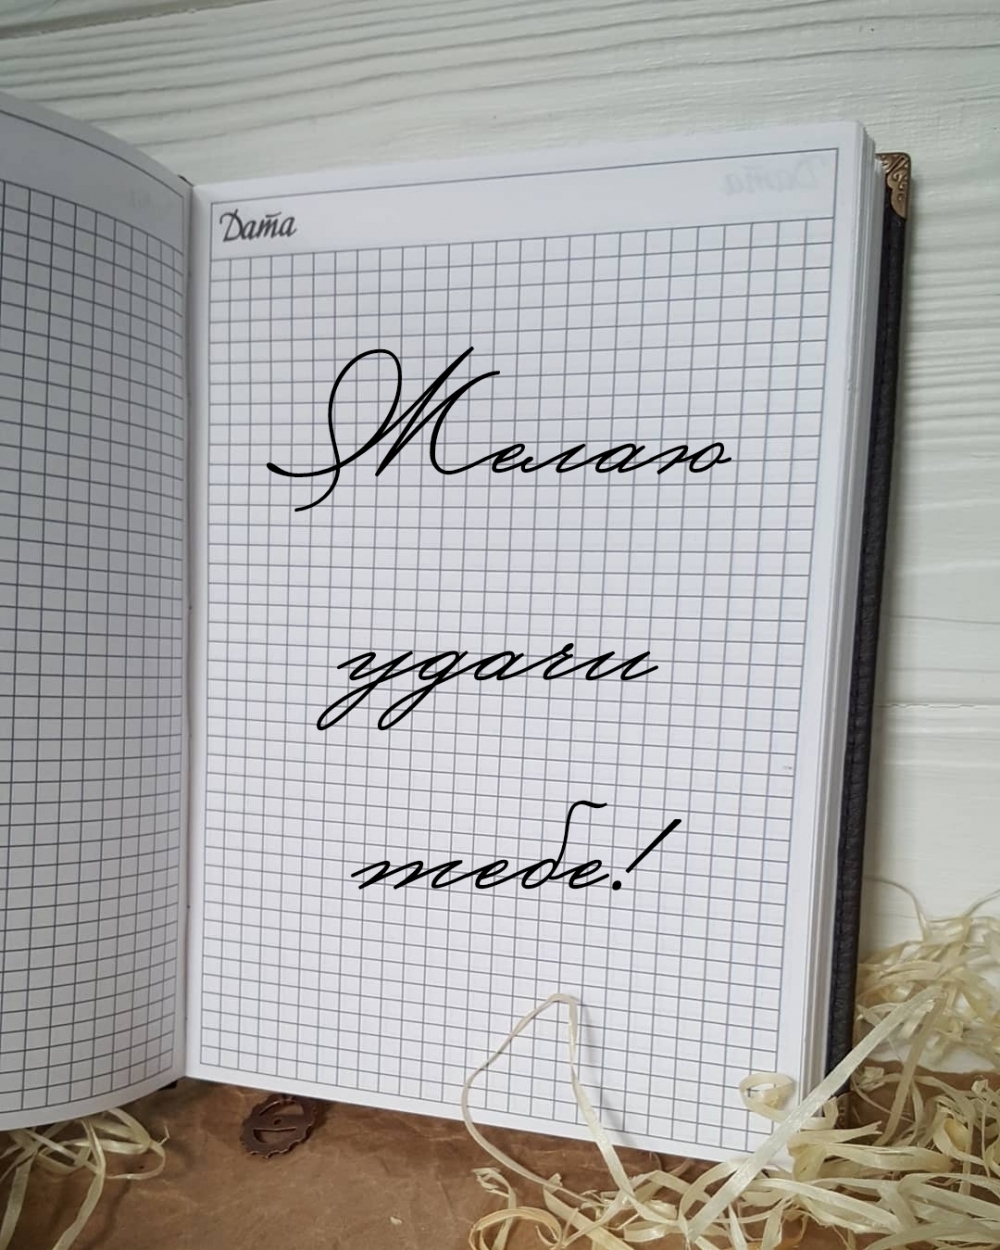 Дата
Желаю
удачи
тебе!